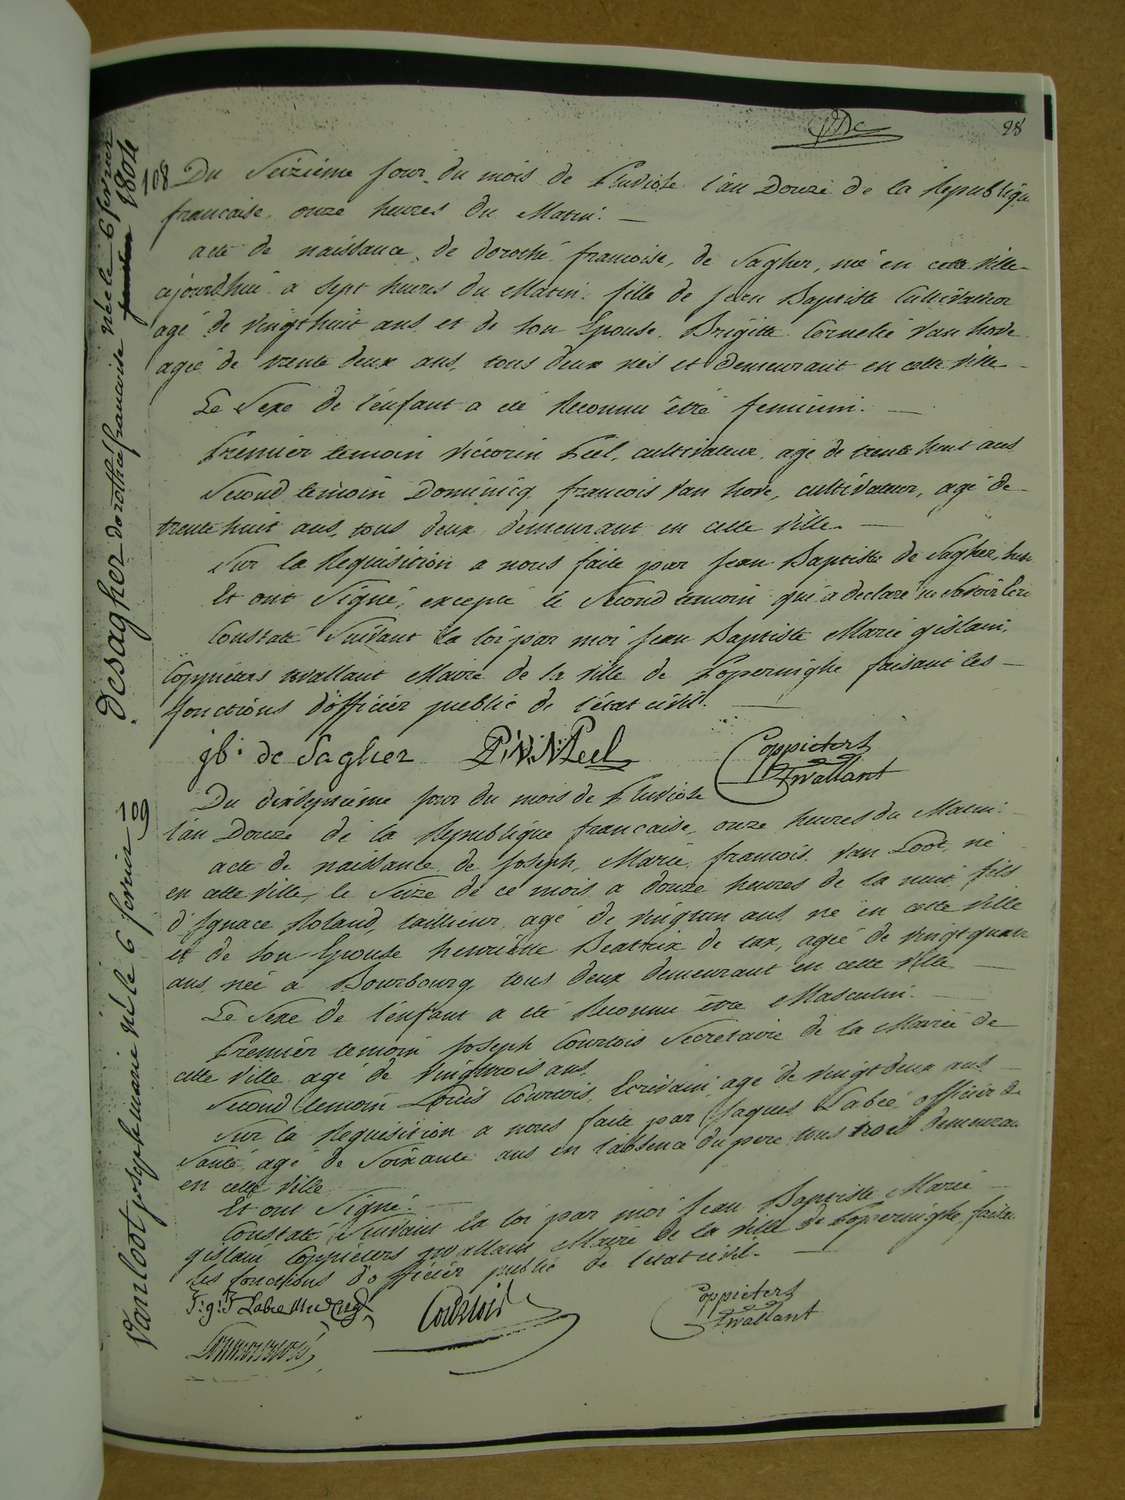 98
108 Du Seizieme jour du mois de Pluviose l'an Douze de la Republique
francaise, onze heures du Matin. —
acte de naissance, de dorothé francoise, de Sagher, née en cette ville
ajourdhui a sept heures du Matin, fille de jean Baptiste Cultivateur
agé de vingthuit ans et de son Epouse Brigitte Cornelie Van hove
agée de trente deux ans, tous deux nés et demeurant en cette ville —
Le Sexe de l'enfant a été Reconnu être feminin. —
Premier temoin victorin Peel, cultivateur, agé de trente huit ans
Second temoin Dominicq francois Van hove, cultivateur, agé de
trente huit ans, tous deux demeurant en cette ville. —
Sur la Requisition a nous faite par jean Baptiste de Sagher,
Et ont Signé, excepté le Second temoin qui a declaré ne Savoir
Constaté Suivant la loi par moi jean Baptiste Marie gislain,
Coppieters wallant Maire de la ville de Poperinghe faisant les —
fonctions d'officier public de l'état civil. —
jb. de Sagher P.V.N. Peel Coppieters
Twallant
desagher dorothée francoise née le 6 fevrier 1804
109 Du dixseptieme jour du mois de Pluviose
l'an Douze de la Republique francaise, onze heures du Matin.
acte de naissance de joseph, Marie, francois, Van Loot, né
en cette ville, le Seize de ce mois a douze heures de la nuit, fils
d'Ignace Roland, taillieur, agé de vingtun ans né en cette ville
et de son Epouse henriette Beatrix de tax, agée de vingt quatre
ans, née à Bourbourg, tous deux demeurant en cette ville —
Le Sexe de l'enfant a été Reconnu être Masculin. —
Premier temoin joseph Courtois Secretaire de la Mairie de
cette ville agé de vingttrois ans.
Second temoin Louis Courtois, Ecrivain, agé de vingt deux ans —
Sur la Requisition a nous faite par Jaques Labeé, officier de
Santé, agé de Soixante ans en l'absence du pere, tous trois demeurant
en cette ville
Et ont Signé. —
Constaté Suivant la loi par moi jean Baptiste Marie —
gislain Coppieters wallant Maire de la ville de Poperinghe, faisant
les fonctions d'officier public de l'état civil. —
Courtois Coppieters
Twallant
Vanloot joseph marie né le 6 fevrier